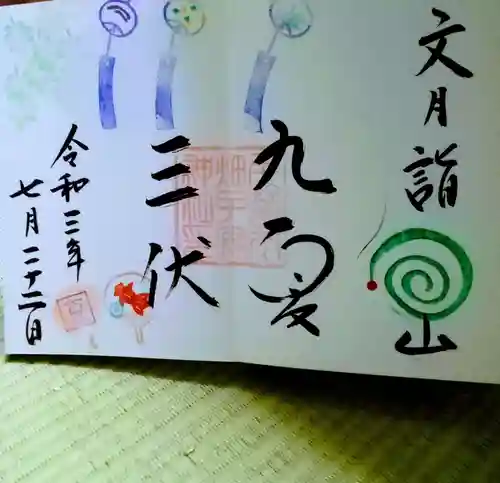 文月詣
九夏
三伏
令和三年
七月二十二日